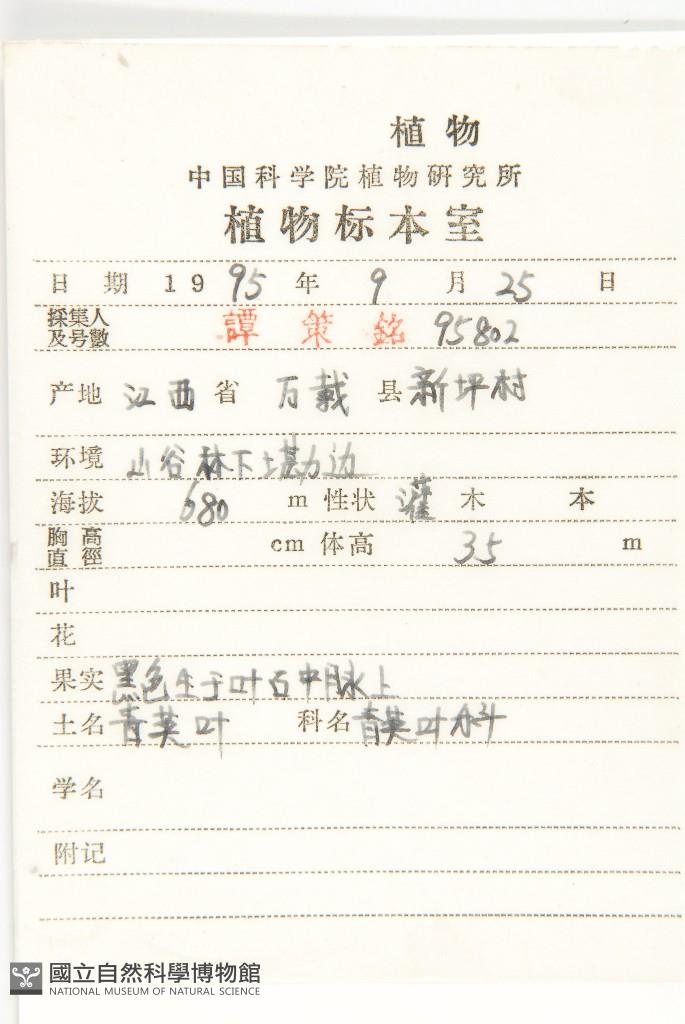 植物
中国科学院植物研究所
植物标本室
日期 1995年 9月 25日
採集人及号數 譚策銘 95802
产地 江西省 万載县 新坪村
环境 山谷林下堪边
海拔 680 m 性状 灌木 本
胸高直徑 cm 体高 35 m
叶
花
果实 黑色生于叶面中脉上
土名 青荚叶 科名 青荚叶科
学名
附记
國立自然科學博物館
NATIONAL MUSEUM OF NATURAL SCIENCE